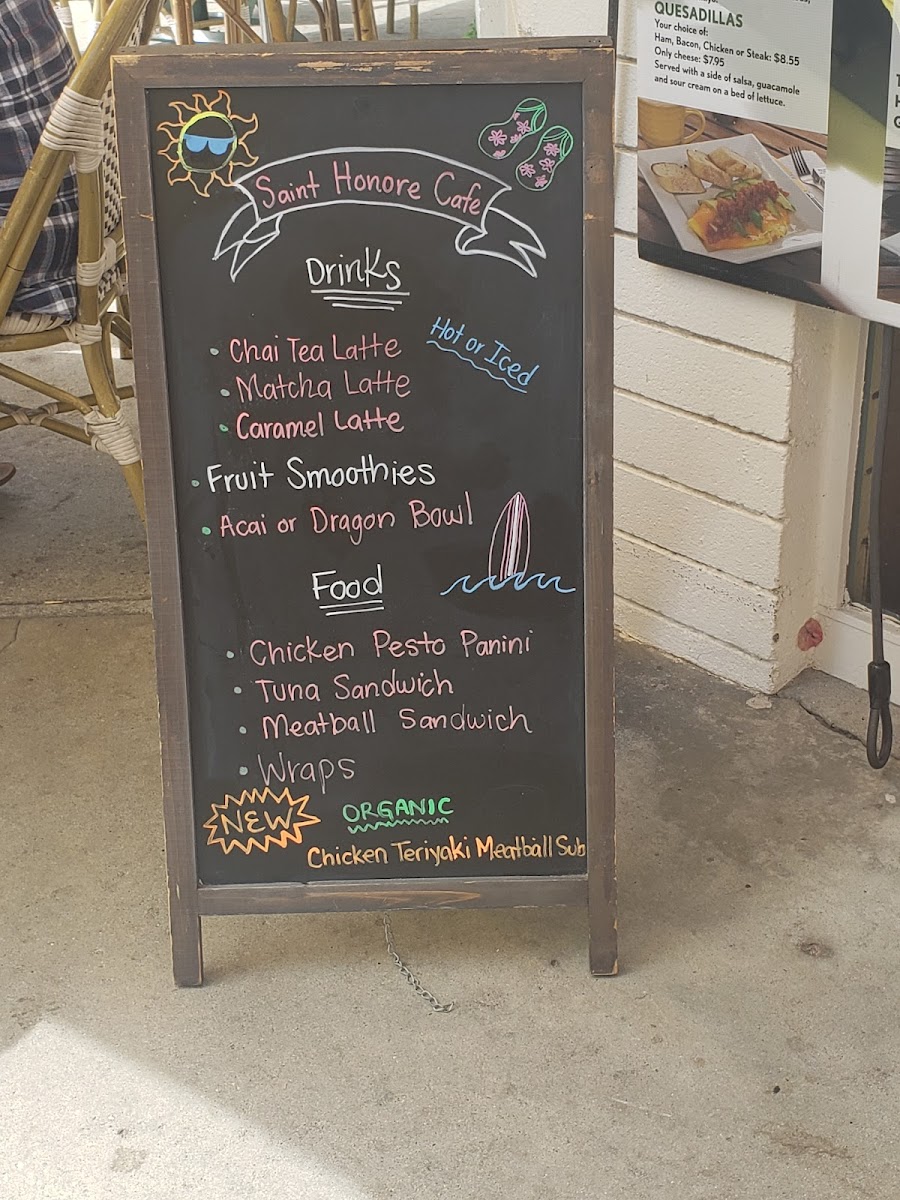 Saint Honore Cafe
Drinks
Hot or Iced
• Chai Tea Latte
• Matcha Latte
• Caramel Latte
• Fruit Smoothies
• Acai or Dragon Bowl
Food
• Chicken Pesto Panini
• Tuna Sandwich
• Meatball Sandwich
• Wraps
NEW ORGANIC
Chicken Teriyaki Meatball Sub
QUESADILLAS
Your choice of:
Ham, Bacon, Chicken or Steak: $8.55
Only cheese: $7.95
Served with a side of salsa, guacamole
and sour cream on a bed of lettuce.